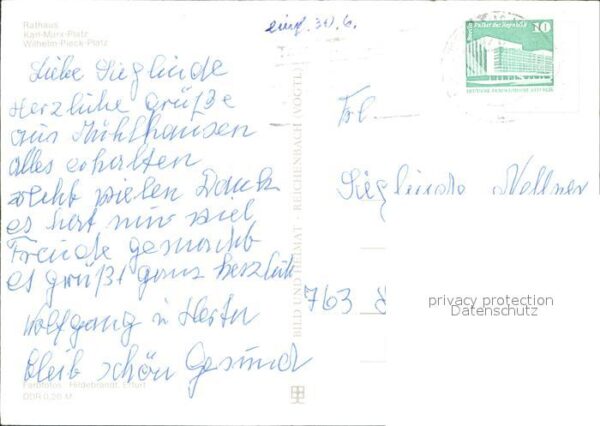 Rathaus
Karl-Marx-Platz
Wilhelm-Pieck-Platz
eingf. 30.6.
Liebe Sieglinde
Herzliche Grüße
aus Mühlhausen
alles erhalten
recht vielen Dank
es hat mir viel
Freude gemacht
es grüßt ganz herzlich
Wolfgang u Herta
bleib schön Gesund
Farbfotos: Hildebrandt, Erfurt
DDR 0,20 M
BILD UND HEIMAT · REICHENBACH (VOGTL)
Berlin · Palast der Republik
10
DEUTSCHE DEMOKRATISCHE REPUBLIK
Frl.
Sieglinde Nollner
763
privacy protection
Datenschutz